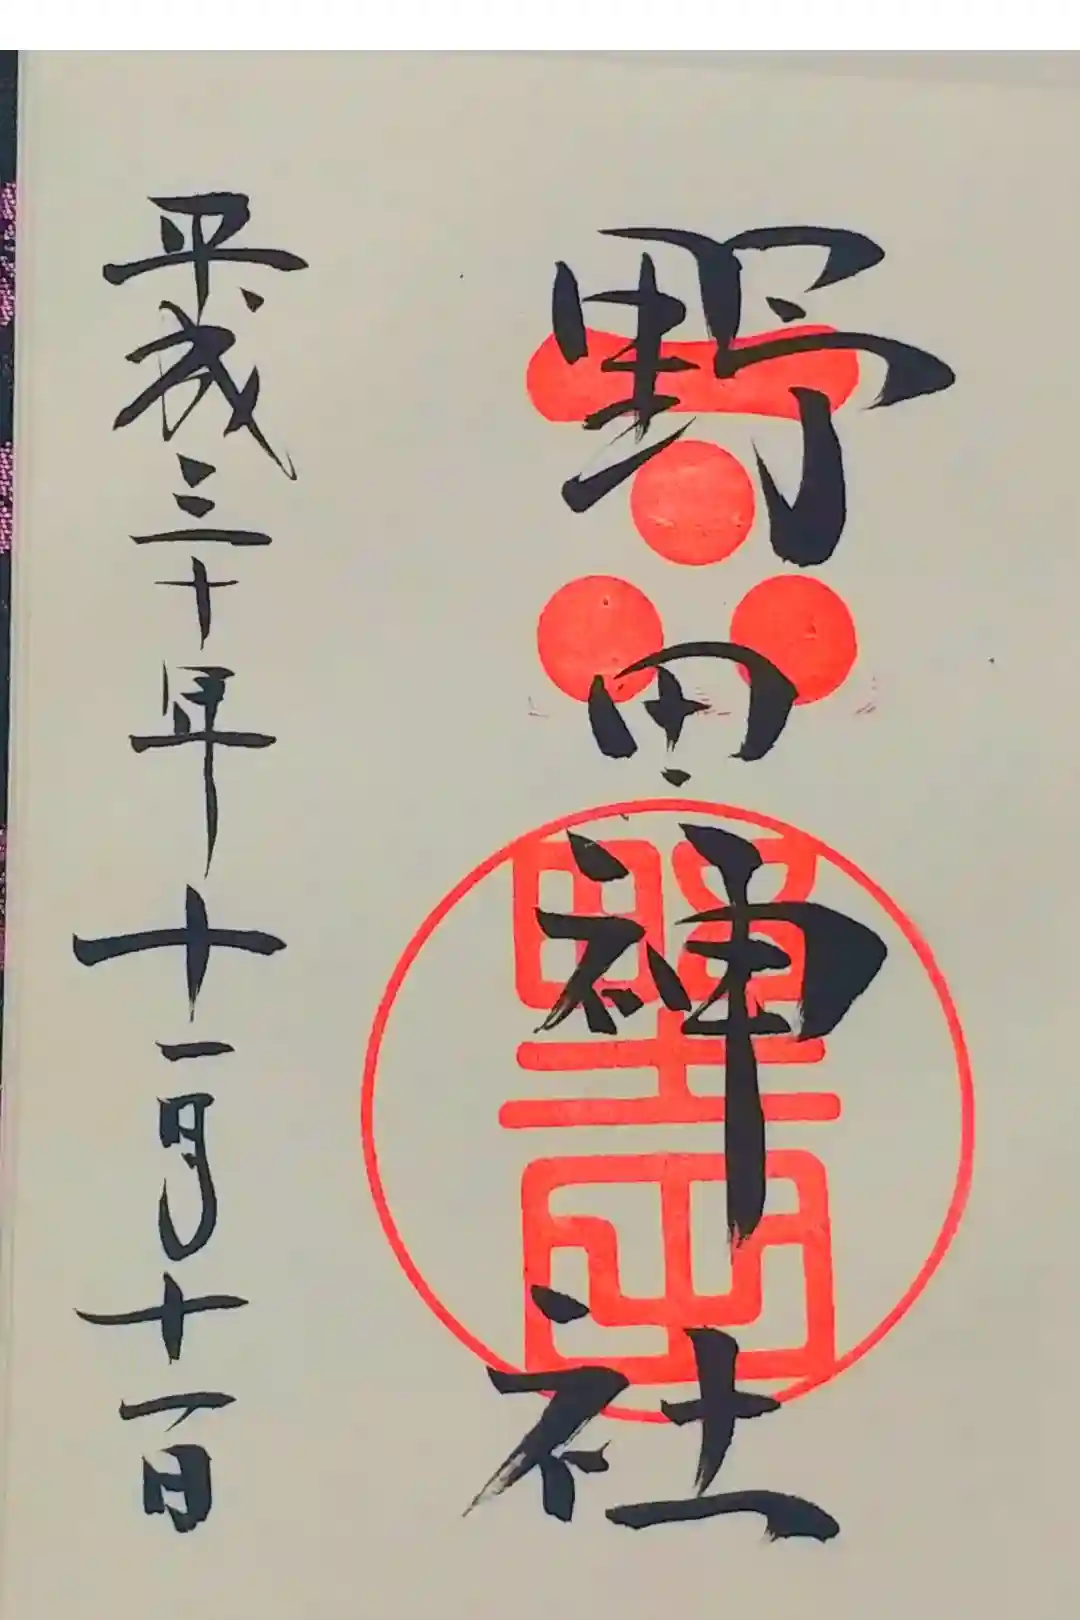 野田神社
野田
平成三十年十一月十一日